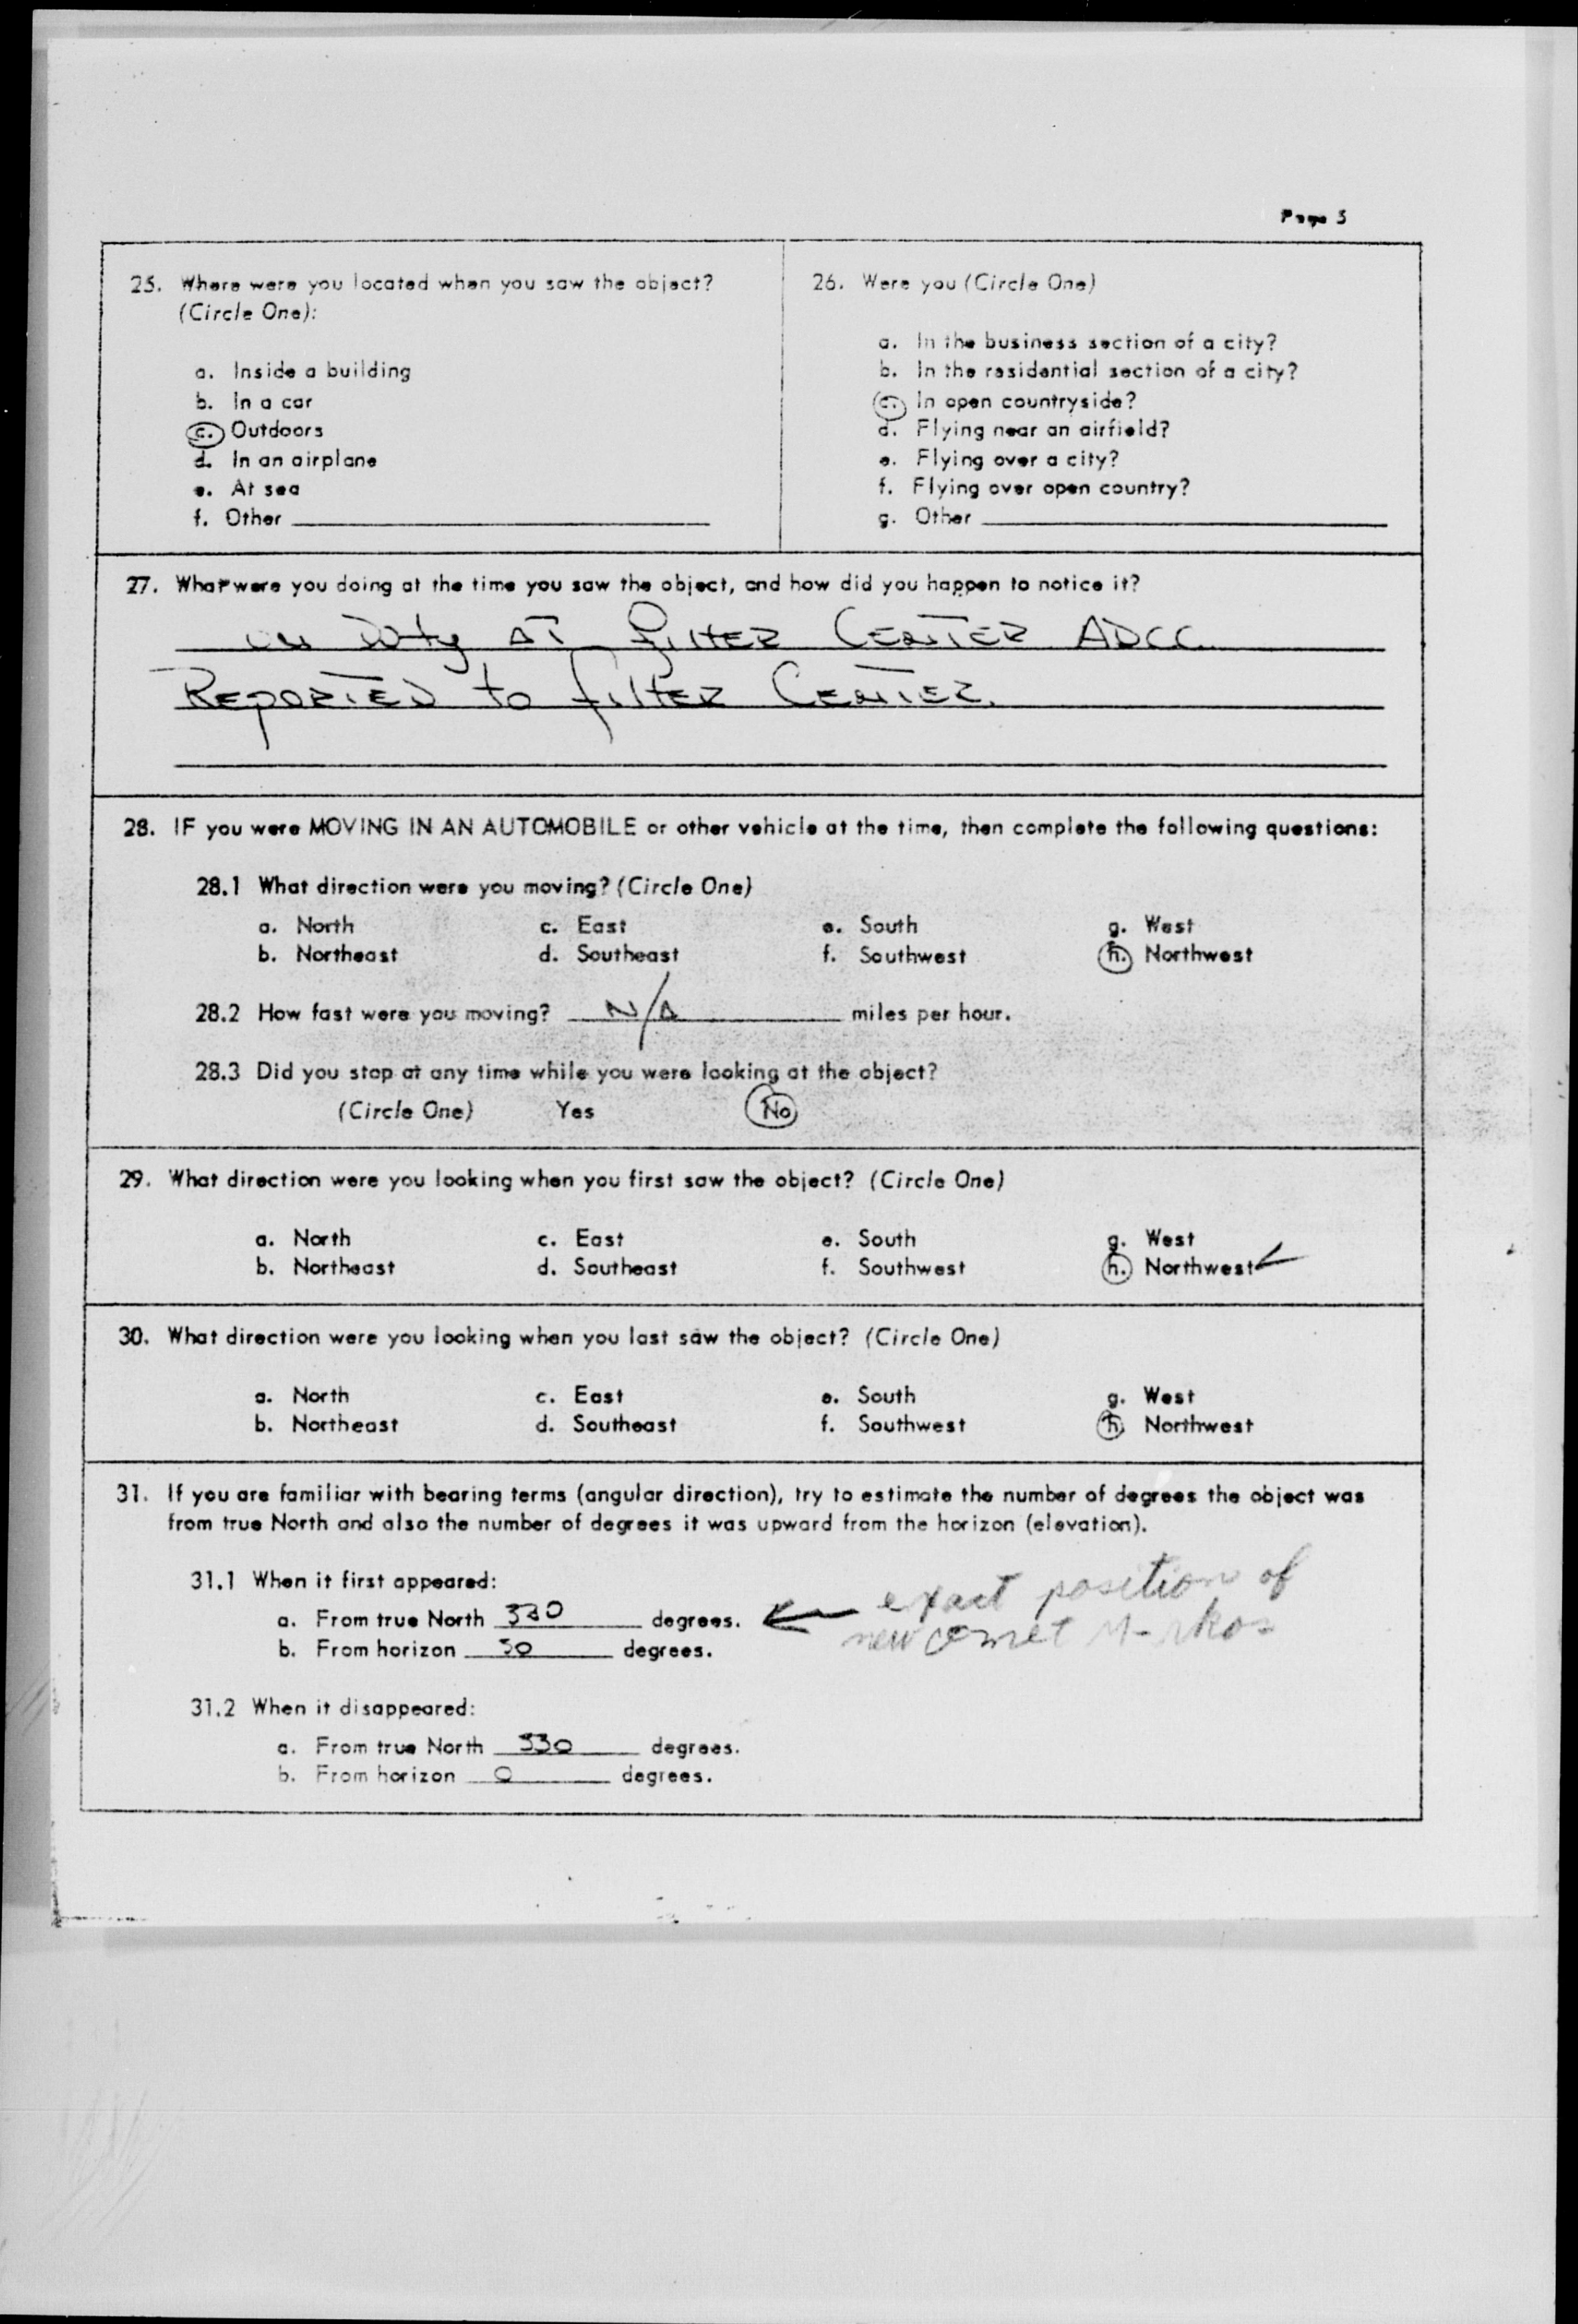 Page 5
25. Where were you located when you saw the object?
(Circle One):
a. Inside a building
b. In a car
c. Outdoors
d. In an airplane
e. At sea
f. Other
26. Were you (Circle One)
a. In the business section of a city?
b. In the residential section of a city?
c. In open countryside?
d. Flying near an airfield?
e. Flying over a city?
f. Flying over open country?
g. Other
27. What were you doing at the time you saw the object, and how did you happen to notice it?
on Duty AT filter CENTER ADCC.
REPORTED to filter CENTER.
28. IF you were MOVING IN AN AUTOMOBILE or other vehicle at the time, then complete the following questions:
28.1 What direction were you moving? (Circle One)
a. North c. East e. South g. West
b. Northeast d. Southeast f. Southwest h. Northwest
28.2 How fast were you moving? N/A miles per hour.
28.3 Did you stop at any time while you were looking at the object?
(Circle One) Yes No
29. What direction were you looking when you first saw the object? (Circle One)
a. North c. East e. South g. West
b. Northeast d. Southeast f. Southwest h. Northwest
30. What direction were you looking when you last saw the object? (Circle One)
a. North c. East e. South g. West
b. Northeast d. Southeast f. Southwest h. Northwest
31. If you are familiar with bearing terms (angular direction), try to estimate the number of degrees the object was
from true North and also the number of degrees it was upward from the horizon (elevation).
31.1 When it first appeared:
a. From true North 330 degrees.
b. From horizon 30 degrees.
exact position of
new comet Mrkos
31.2 When it disappeared:
a. From true North 330 degrees.
b. From horizon 0 degrees.